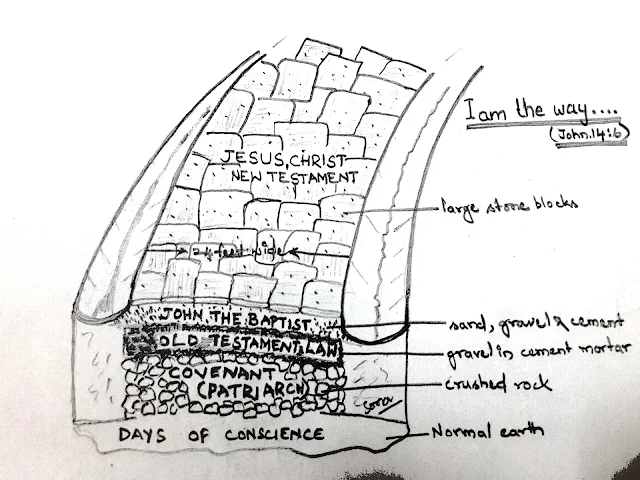 I am the way....
(John.14:6)
JESUS, CHRIST
NEW TESTAMENT
large stone blocks
feet wide
JOHN THE BAPTIST
sand, gravel & cement
OLD TESTAMENT, LAW
gravel in cement mortar
COVENANT
(PATRIARCH)
crushed rock
DAYS OF CONSCIENCE
Normal earth